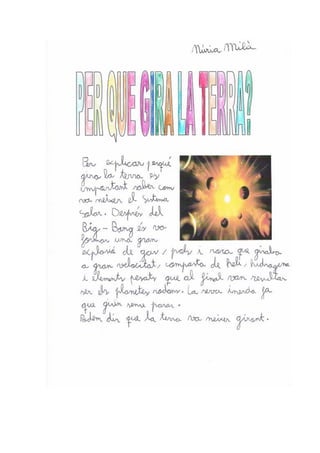 Núria Milà
PER QUE GIRA LA TERRA?
Per explicar perquè
gira la terra es
important saber com
va neixer el Sistema
Solar. Després del
Big-Bang és va
formar una gran
explosió de gas, pols i roca que giraba
a gran velocitat, composta de heli, hidrogene
i elements pesats que al final van resultar
ser els planetes rodons. La seva inercia fa
que girin sense parar.
Podem dir que la terra va neixer girant.